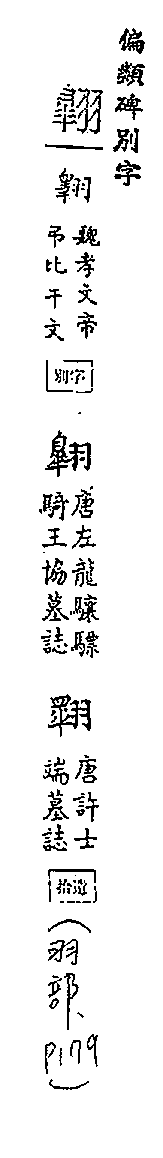 偏類碑別字
翺
翱
魏孝文帝
吊比干文
別字
翺
唐左龍驤驃
騎王協墓誌
唐許士
端墓誌
拾遺
(羽部、P179)